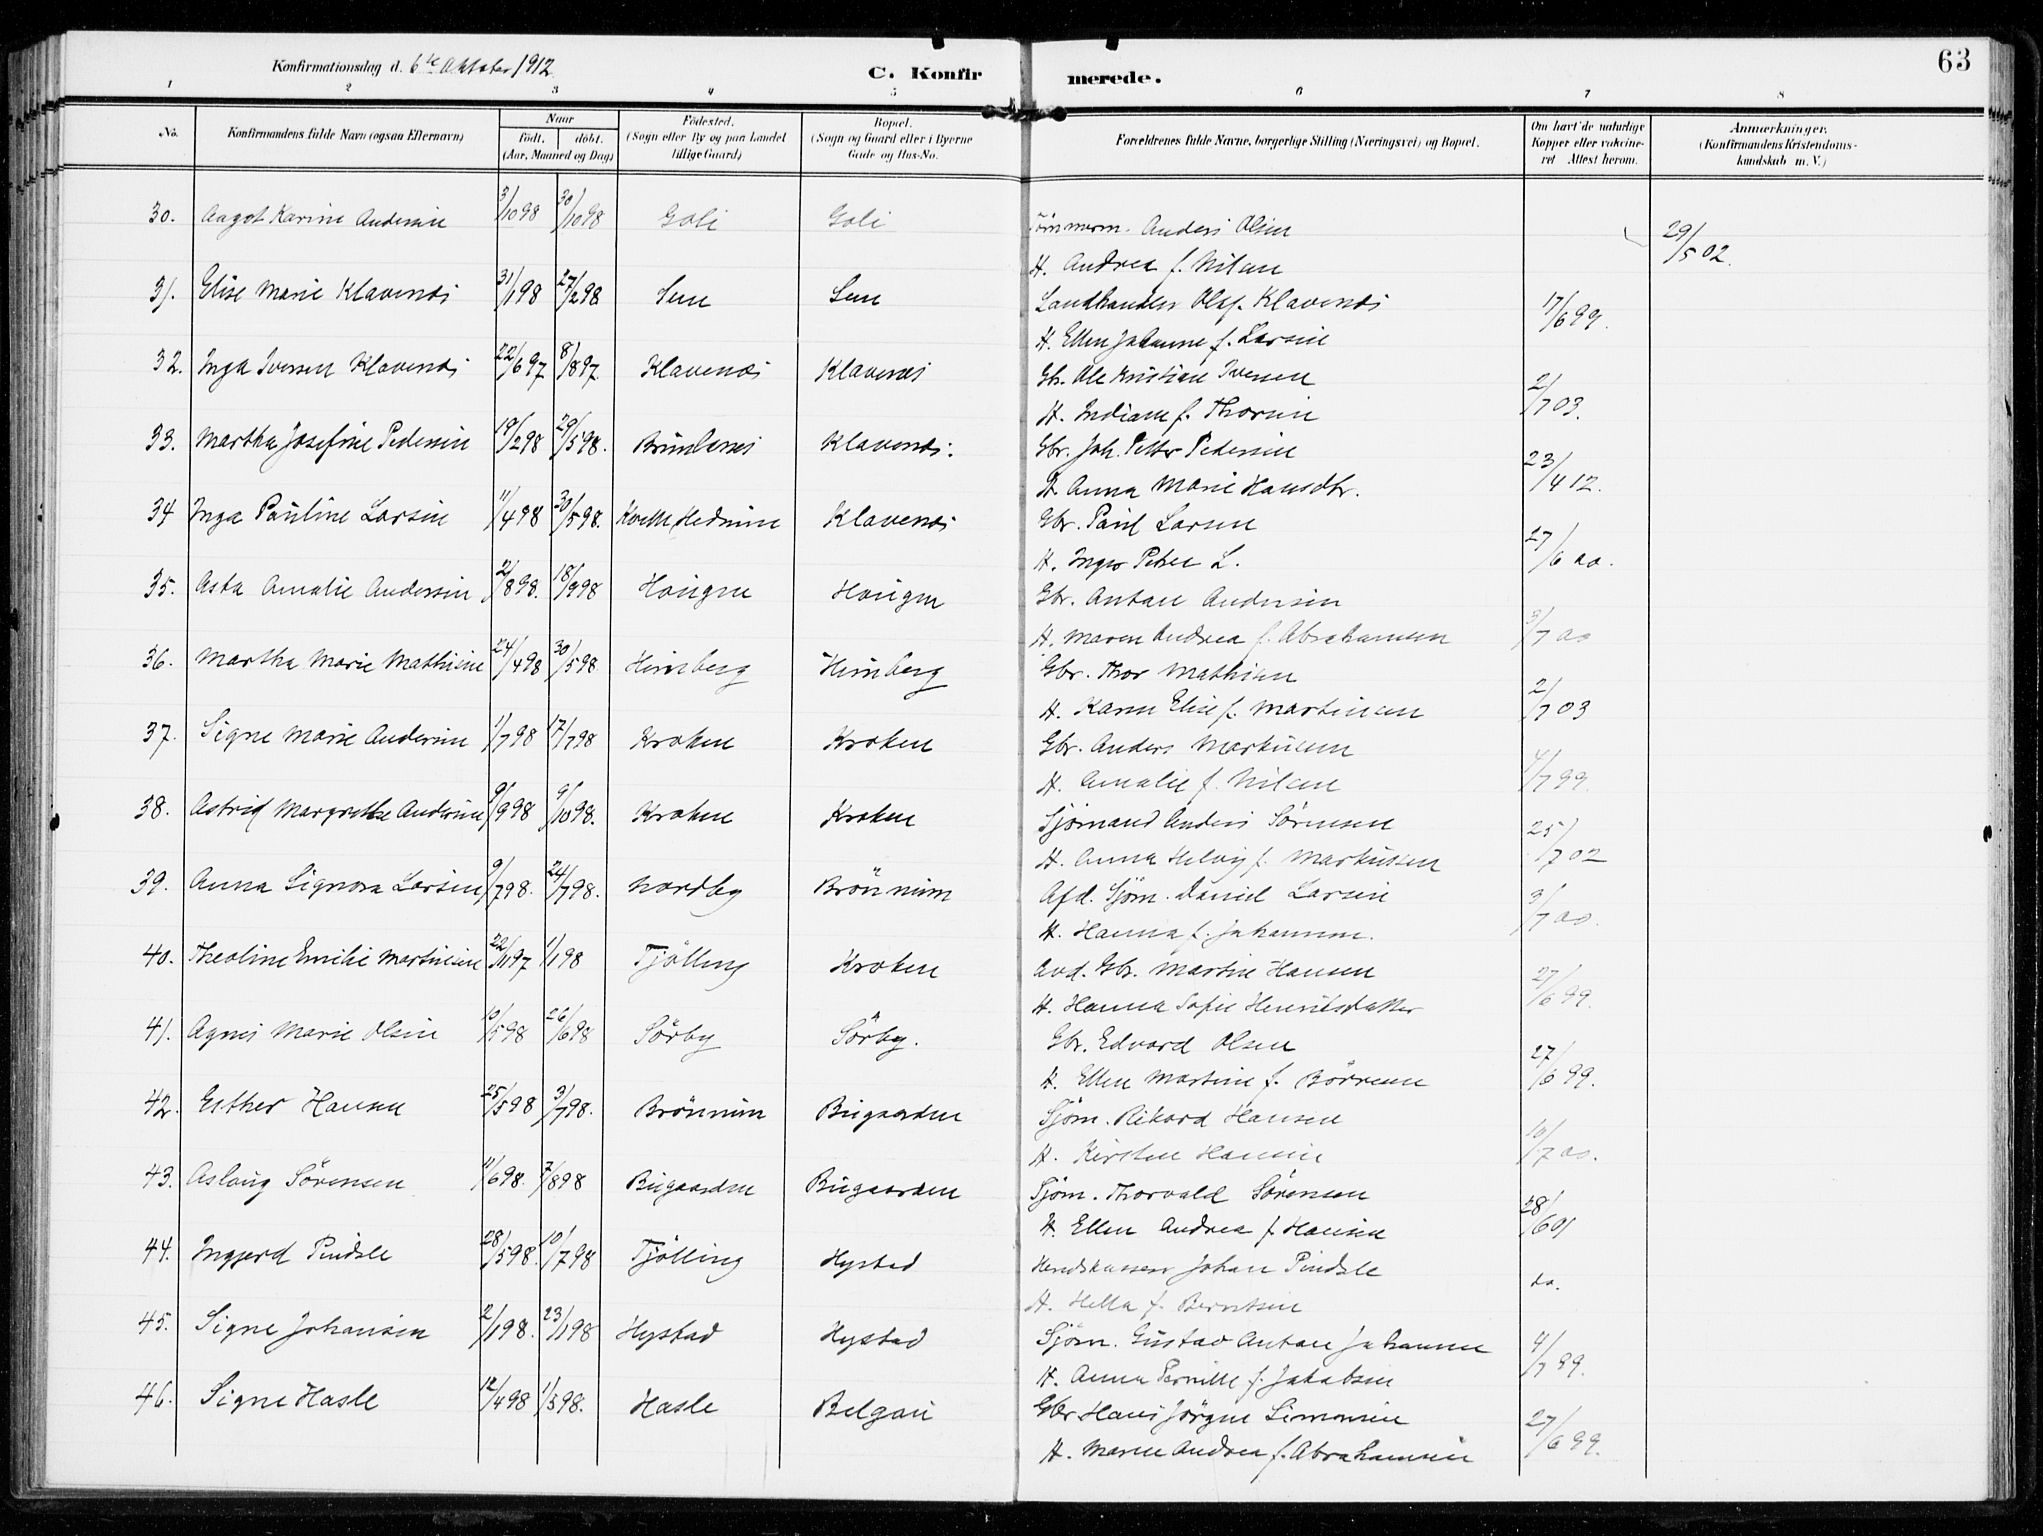 63
Konfirmationsdag d. 6te Oktober 1912
C. Konfirmerede.
1 2 3 4 5 6 7 8
No. Konfirmandens fulde Navn (ogsaa Efternavn) Naar født. døbt. (Aar, Maaned og Dag) Fødested. (Sogn eller By og paa Landet tillige Gaard) Bopæl. (Sogn og Gaard eller i Byerne Gade og Hus-No. Forældrenes fulde Navne, borgerlige Stilling (Næringsvei) og Bopæl. Om havt de naturlige Kopper eller vakcineret Attest herom. Anmærkninger. (Konfirmandens Kristendomskundskab m. V.)
30. Aagot Karine Andersen 3/10 98 30/10 98 Gali Gali Tömmerm. Anders Olsen 29/5 02.
H. Andrea f. Nilsen
31. Elise Marie Klavenæs 31/1 98 27/2 98 Sem Sem Landhandler Olaf Klavenæs 17/6 99.
H. Ellen Johanne f. Larsen
32. Inga Iversen Klavenæs 22/6 97 8/8 97 Klavenæs Klavenæs Gbr. Ole Kristian Iversen 2/7 03.
H. Indiane f. Thorsen
33. Martha Josefine Pedersen 19/2 98 29/5 98. Klavenæs. Gbr. Joh. Petter Pedersen 23/4 12.
H. Anna Marie Hansdtr.
34 Inga Pauline Larsen 11/4 98 30/5 98. Klavenæs Gbr. Paul Larsen 27/6 00.
H. L.
35. Asta Amalie Andersen 2/8 98. 18/9 98 Haugen Haugen Gbr. Anton Andersen 3/7 00
H. Maren Andrea f. Abrahamsen
36. Martha Marie Mathisen 24/4 98 30/5 98 Himberg Himberg Gbr. Thor Mathisen 2/7 03
H. Karen Elise f. Martinsen
37. Signe Marie Andersen 1/7 98 17/7 98 Kroken Kroken Gbr. Anders Markusen 4/7 99.
H. Amalie f. Nilsen
38. Astrid Margrethe Andersen 9/9 98 9/10 98. Kroken Kroken Sjømand Anders Sörensen 25/7 02
H. Anna Helvig f. Markussen
39. Anna Signora Larsen 9/7 98. 24/7 98. Nordby Brönnum Afd. Sjøm. Daniel Larsen 3/7 00.
H. Hanna f. Johannsen.
40. Theoline Emilie Martinsen 22/11 97 1/1 98 Tjölling Kroken Avd. Gbr. Martin Hansen 27/6 99.
H. Hanna Sofie Henriksdatter
41. Agnes Marie Olsen 10/5 98 26/6 98 Sörby Sörby. Gbr. Edvard Olsen 27/6 99.
H. Ellen Martine f. Börresen
42. Esther Hansen 25/5 98 3/7 98. Brönnum Bugaarden Sjøm. Rikard Hansen 10/7 00.
H. Kirsten Hansen
43. Aslaug Sörensen 11/6 98. 7/8 98 Bugaarden Bugaarden Sjøm. Thorvald Sörensen 28/6 01
H. Ellen Andrea f. Hansen
44. Ingjerd Pindsle 28/5 98. 10/7 98 Tjölling Hystad Herredskasserer Johan Pindsle do.
H. Helle f. Berntsen
45. Signe Johansen 2/1 98. 23/1 98 Hystad Hystad Sjøm. Gustav Anton Johannsen 4/7 99.
H. Anna Pernille f. Jakobsen
46. Signe Hasle 12/4 98 1/5 98. Hasle Belgau Gbr Hans Jörgen Simonsen 27/6 99.
H. Maren Andrea f. Abrahamsen